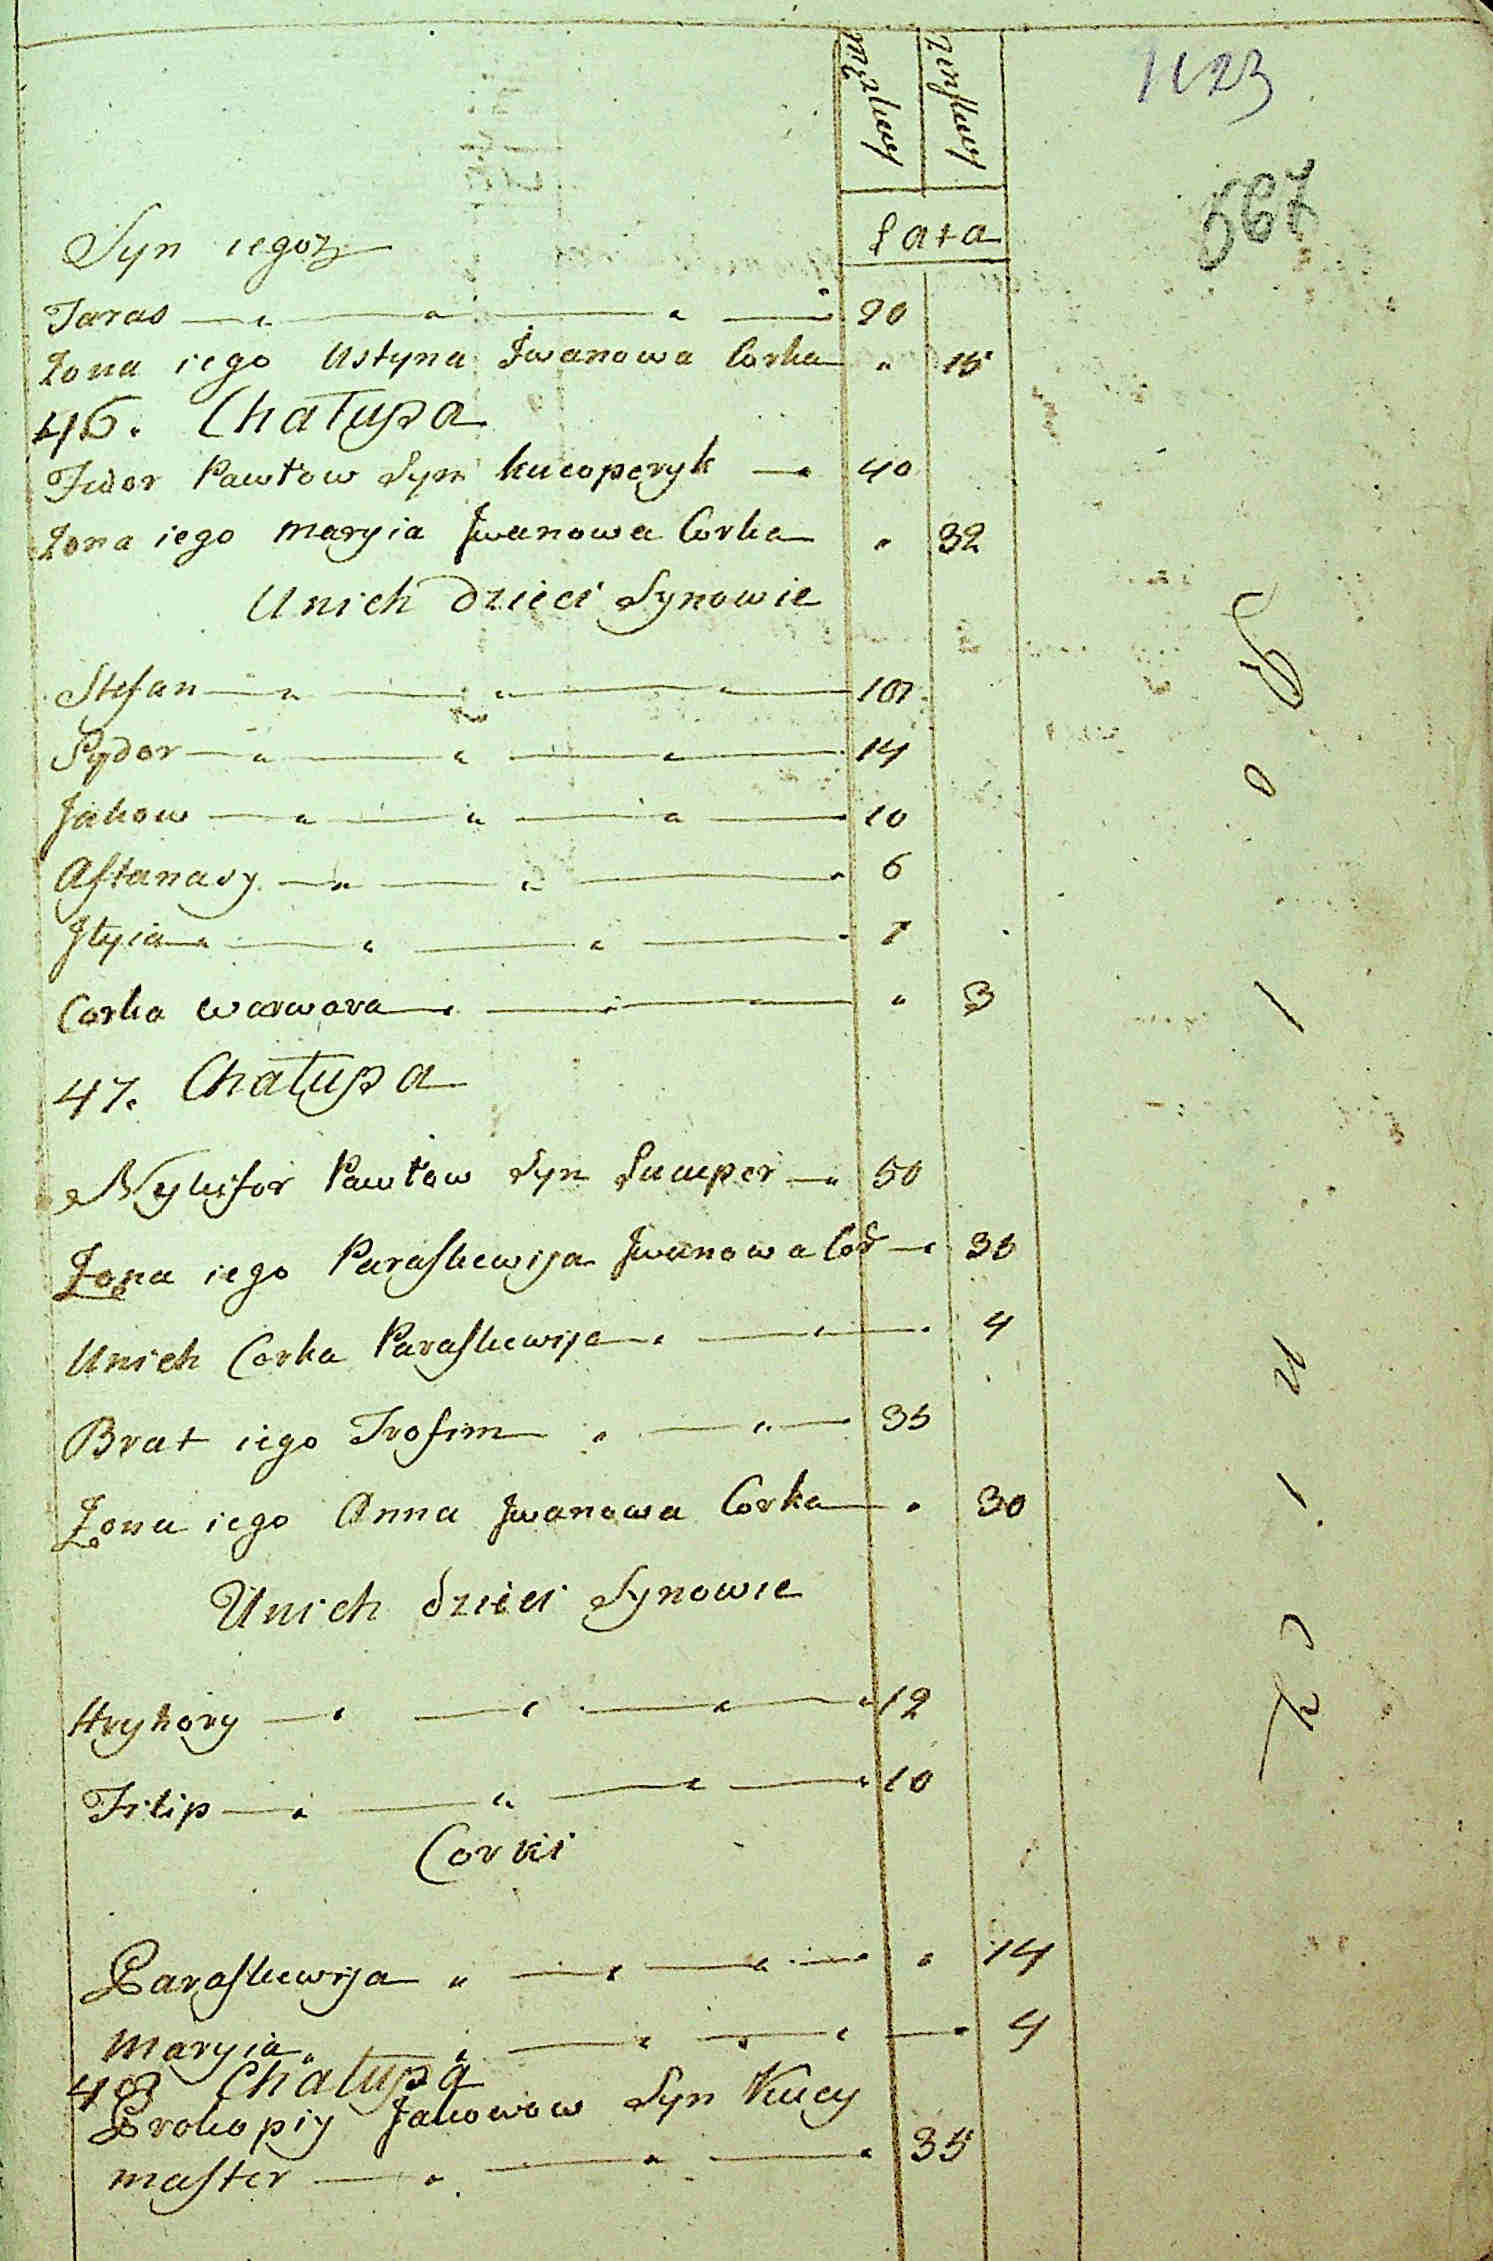 1123
567
męzkiey żenskiey
Lata
Syn iegoz
Taras 20
Zona iego Ustyna Jwanowa Corka " 15
46. Chałupa
Fedor Pawłow Syn 40
Zona iego Maryia Jwanowa Corka " 32
Unich dzieci Synowie
Stefan
Sydor 14
Jakow 10
Aftanasy 6
Jłyia 1
Corka Warwara " 3
47. Chałupa
Nykifor Pawłow Syn 50
Zona iego Paraskewija Jwanowa Cor 35
Unich Corka Paraskewija 4
Brat iego Trofim 35
Zona iego Anna Jwanowa Corka " 30
Unich dzieci Synowie
Hryhory 12
Filip 10
Corki
Paraskewija " 14
Maryia 4
48 Chałupa
Prokopiy Jakowow Syn Kucy
master 35